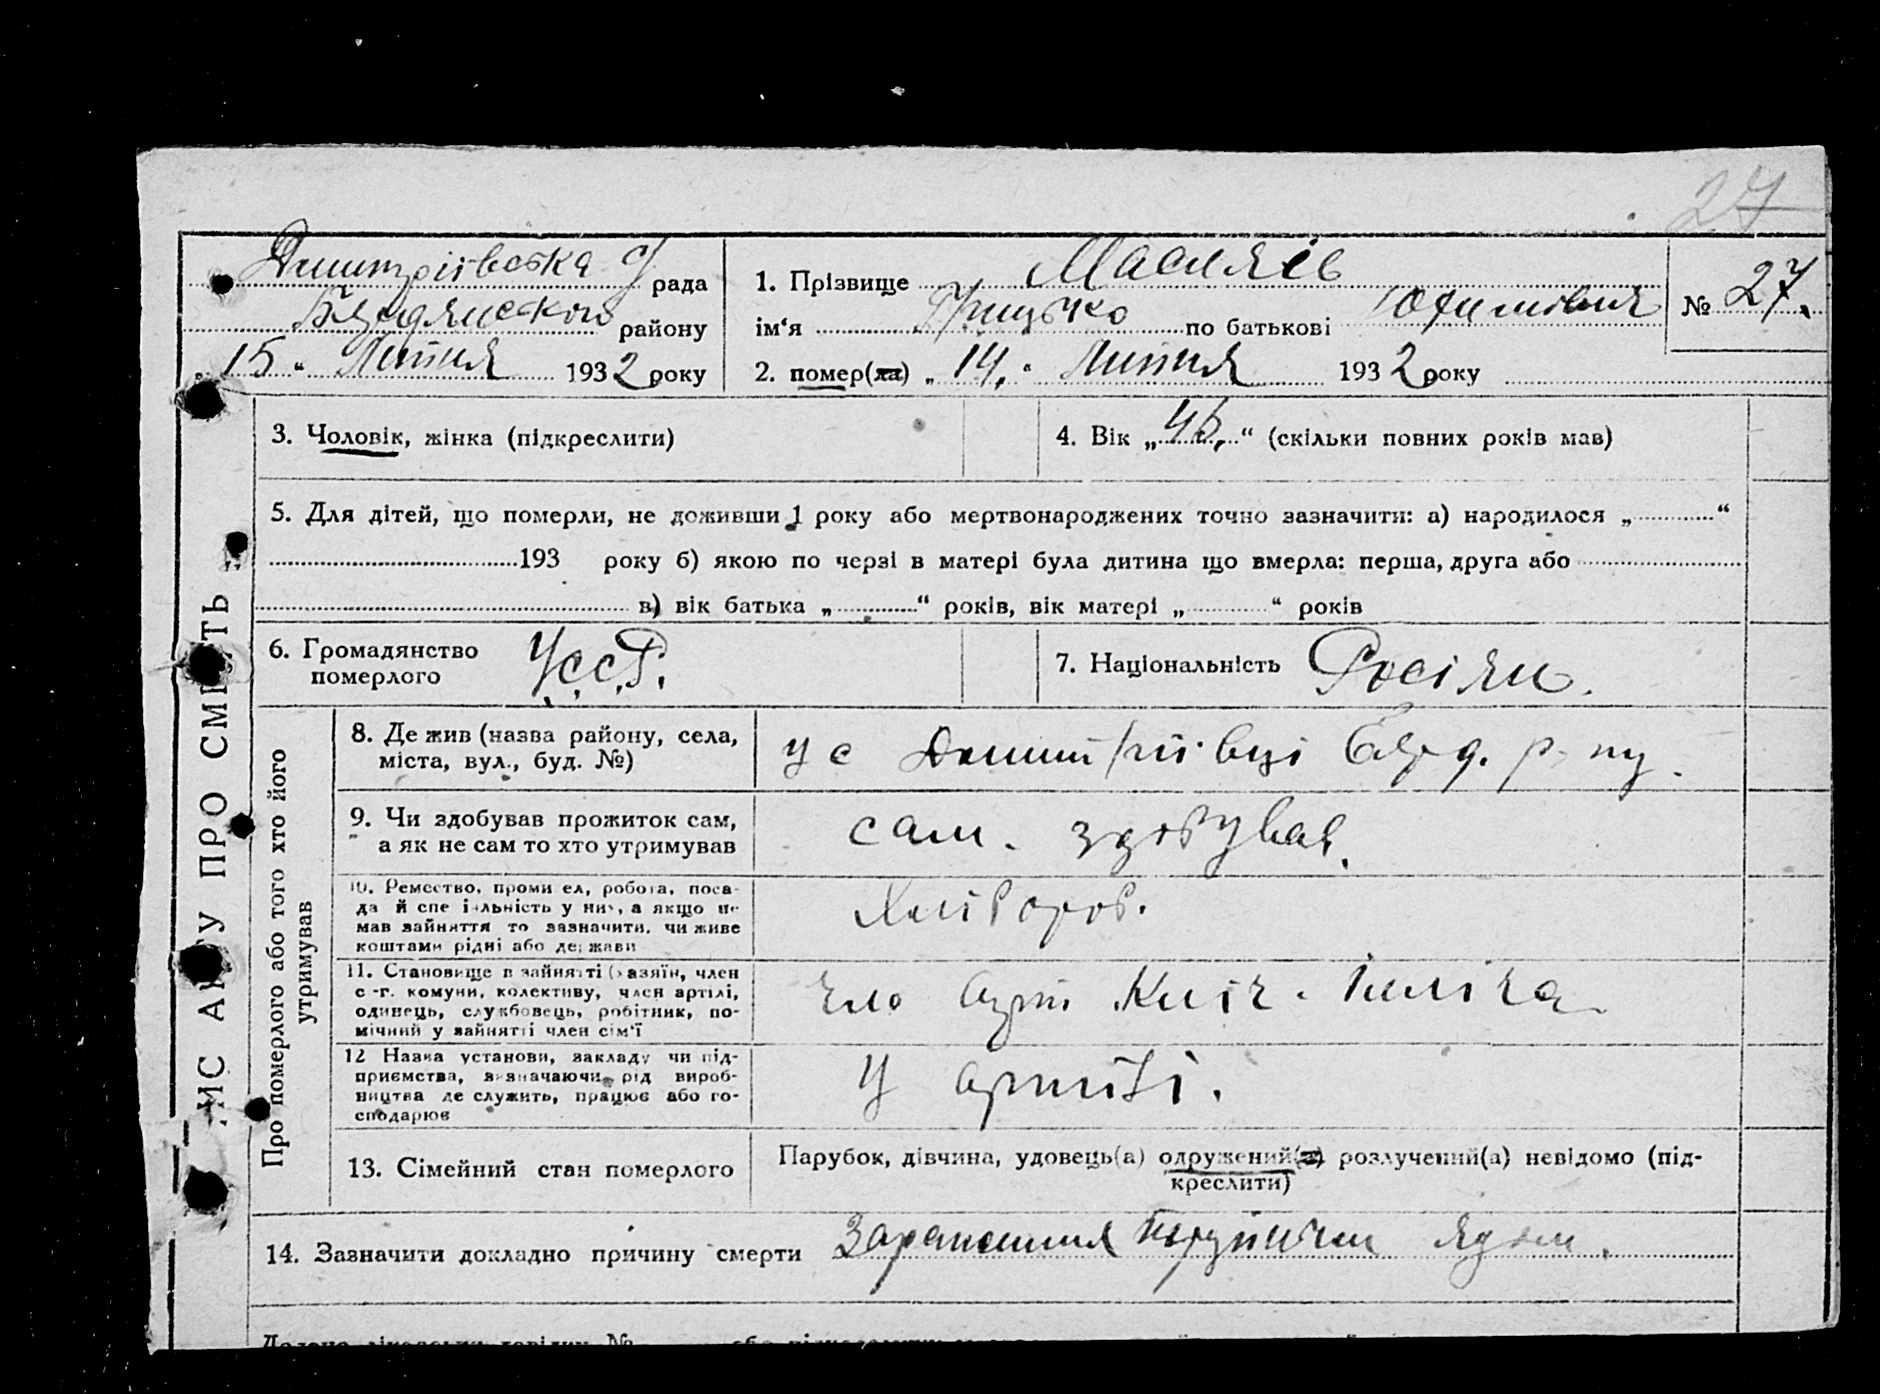 27
Дмитріївська с/рада
Бердянського району
„15“ Липня 1932 року
1. Прізвище Масляєв
ім‘я Грицько по батькові Юхимович
№ 27.
2. помер(ла) „14.“ Липня 1932 року
3. Чоловік, жінка (підкреслити)
4. Вік „46.“ (скільки повних років мав)
5. Для дітей, що померли, не доживши 1 року або мертвонароджених точно зазначити: а) народилося „ “
193 року б) якою по черзі в матері була дитина що вмерла: перша, друга або
в) вік батька „ “ років, вік матері „ “ років
6. Громадянство
померлого
У.С.С.Р.
7. Національність Росіян.
ПИС АКТУ ПРО СМЕРТЬ „
Про померлого або того хто його
утримував
8. Де жив (назва району, села,
міста, вул., буд. №)
у с Дмитріївці Берд. р-ну.
9. Чи здобував прожиток сам,
а як не сам то хто утримував
сам. здобував.
10. Ремество, промисел, робота, поса-
да й спеціяльність у них, а якщо не
мав зайняття то зазначити, чи живе
коштами рідні або держави
Хлібороб.
11. Становище в зайнятті (хазяїн, член
с.-г. комуни, колективу, член артілі,
одинець, службовець, робітник, по-
мічний у зайнятті член сім‘ї
член арт.
12 Назва установи, закладу чи під-
приємства, визначаючи рід вироб-
ництва де служить, працює або го-
сподарює
У артілі.
13. Сімейний стан померлого
Парубок, дівчина, удовець(а) одружений(а) розлучений(а) невідомо (під-
креслити)
14. Зазначити докладно причину смерти Зараження трупним ядом.